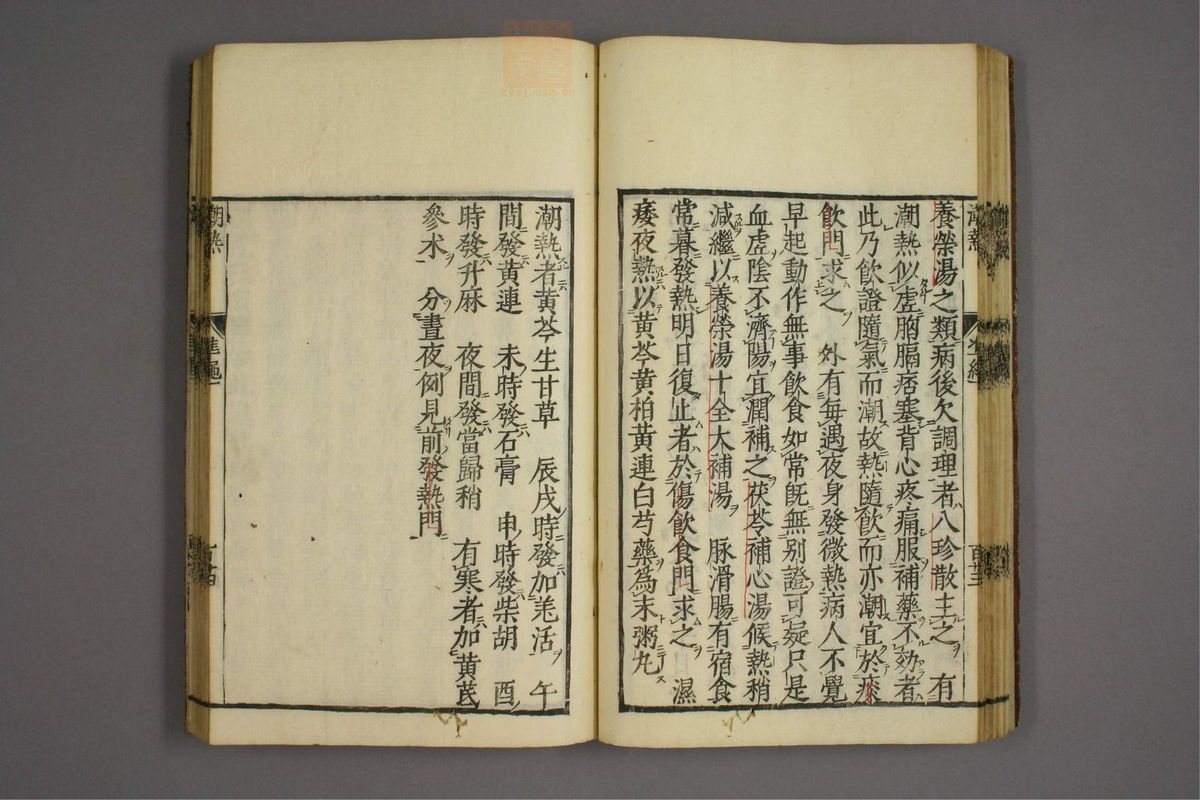 養榮湯之類病後欠調理者八珍散主之 有
潮熱似虛胸膈痞塞背心疼痛服補藥不効者
此乃飲證隨氣而潮故熱隨飲而亦潮宜於痰
飲門求之 外有每遇夜身發微熱病人不覺
早起動作無事飲食如常旣無別證可疑只是
血虛陰不濟陽宜潤補之茯苓補心湯候熱稍
減繼以養榮湯十全大補湯 脉滑腸有宿食
常暮發熱明日復止者於傷飲食門求之 濕
痿夜熱以黄芩黄柏黄連白芍藥為末粥丸
潮熱者黄芩生甘草 辰戌時發加羌活 午
間發黄連 未時發石膏 申時發柴胡 酉
時發升麻 夜間發當歸稍 有寒者加黄芪
參朮 分晝夜例見前發熱門
潮熱
百十四